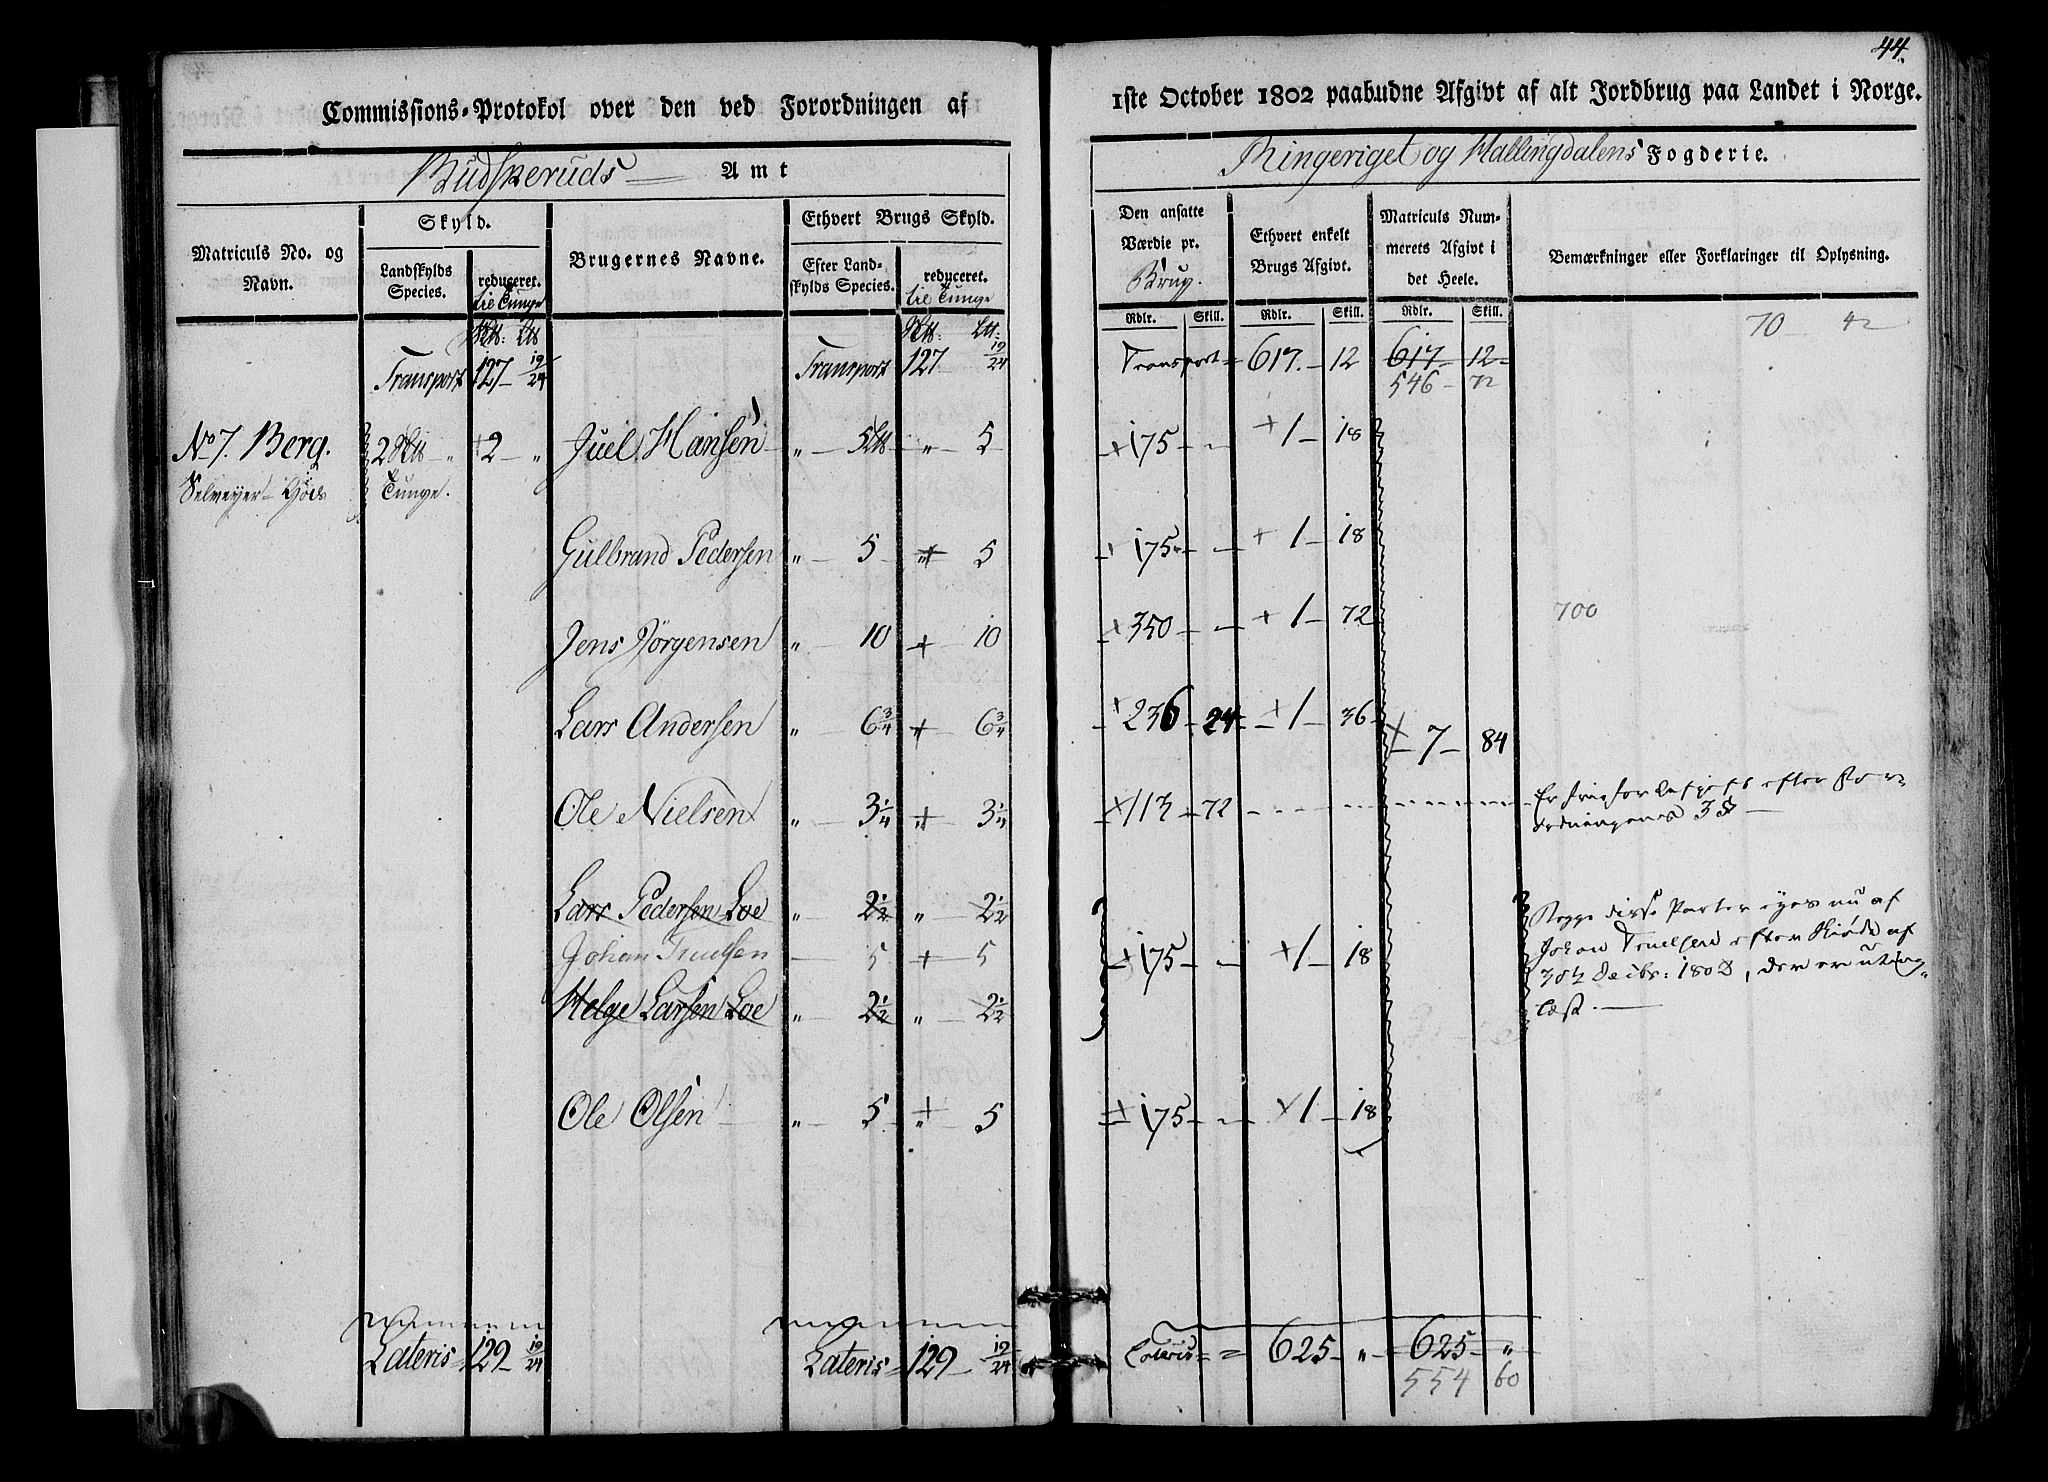 44.
Commissions-Protokol over den ved Forordningen af
1ste October 1802 paabudne Afgivt af alt Jordbrug paa Landet i Norge.
Budskeruds Amt
Ringeriget og Hallingdalens Fogderie.
Matriculs No. og Navn.
Skyld.
Landskylds Species.
reduceret. til Tunge
Brugernes Navne.
Ethvert Brugs Skyld.
Efter Landskylds Species.
reduceret. til Tunge
Den ansatte Værdie pr. Brug.
Ethvert enkelt Brugs Afgivt.
Matriculs Nummerets Afgivt i det Heele.
Bemærkninger eller Forklaringer til Oplysning.
Rdlr. Skill. Rdlr. Skill. Rdlr. Skill.
70 42
Transport 127 19/24 Transport 127 19/24 Transport 617 12 617 12
546 72
No 7. Berg. 2 2 Juel Hansen 5 5 175 1 18
Tunge.
Gulbrand Pedersen 5 5 175 1 18
Jens Jörgensen 10 10 350 1 72 700
Lars Andersen 6 3/4 6 3/4 236 24 1 36
7 84
Ole Nielsen 3 1/4 3 1/4 113 72 Er fri for Afgift efter For
ordningens 3 §
Lars Pedersen Loe 2 1/2 2 1/2 Begge disse Parter eyes nu af
Johan Truelsen 5 5 175 1 18 Johan Truelsen efter Skiöde af
Helge Larsen Loe 2 1/2 2 1/2 Decbr: der er uting-
læst.
Ole Olsen 5 5 175 1 18
Lateris 129 19/24 Lateris 129 19/24 Lateris 625 " 625 "
554 60